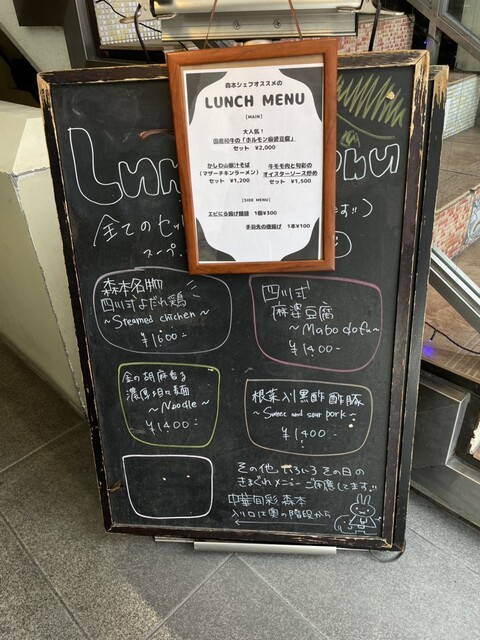 森本シェフオススメの
LUNCH MENU
[MAIN]
大人気!
国産和牛の「ホルモン麻婆豆腐」
セット ¥2,000
かしわ山椒汁そば
(マザーチキンラーメン)
セット ¥1,200
牛モモ肉と旬彩の
オイスターソース炒め
セット ¥1,500
[SIDE MENU]
エビにら揚げ饅頭 1個¥300
手羽先の唐揚げ 1本¥100
Lun
nu
全てのセッ
ます!!)
スープ.
森本名物
四川式よだれ鶏
~Steamed chicken~
¥1600-
四川式
麻婆豆腐
~Mabo dofu~
¥1400-
金の胡麻香る
濃厚担々麺
~Noodle~
¥1400-
根菜入り黒酢酢豚
~Sweet and sour pork~
¥1400-
その他いろいろその日の
きまぐれメニューご用意してます!!
中華旬彩 森本
入り口は奥の階段から